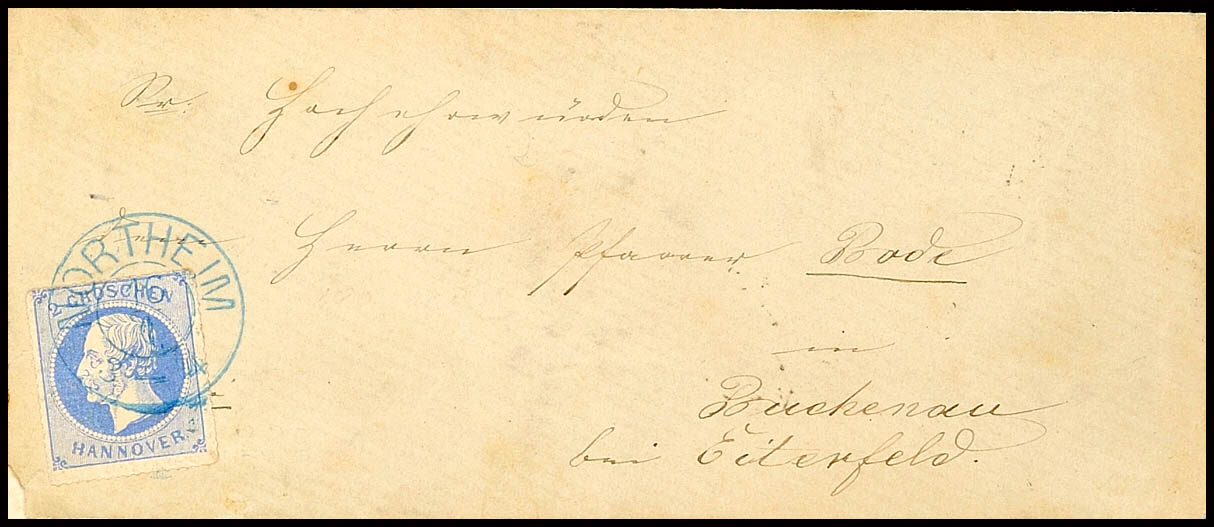 Sr. Hochehrwürden
dem Herrn Pfarrer Bode
in
Buchenau
bei Eiterfeld.
NORTHEIM
2 GROSCHEN
HANNOVER